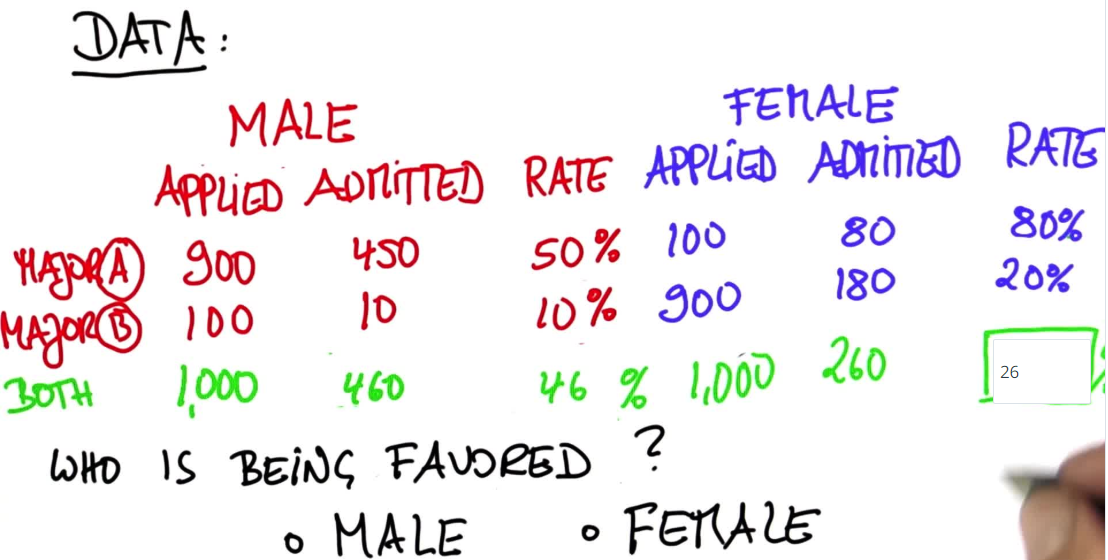 DATA:
MALE FEMALE
APPLIED ADMITTED RATE APPLIED ADMITTED RATE
MAJOR A 900 450 50% 100 80 80%
MAJOR B 100 10 10% 900 180 20%
BOTH 1,000 460 46 % 1,000 260 26 %
WHO IS BEING FAVORED ?
MALE FEMALE